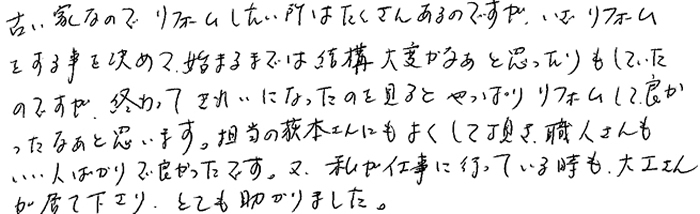 古い家なので、リフォームしたい所はたくさんあるのですが、いざリフォーム
をする事を決めて、始まるまでは結構大変かなあと思ったりもしていた
のですが、終わってきれいになったのを見るとやっぱりリフォームして良か
ったなあと思います。担当の萩本さんにもよくして頂き、職人さんも
いい人ばかりで良かったです。又、私が仕事に行っている時も、大工さん
が居て下さり、とても助かりました。